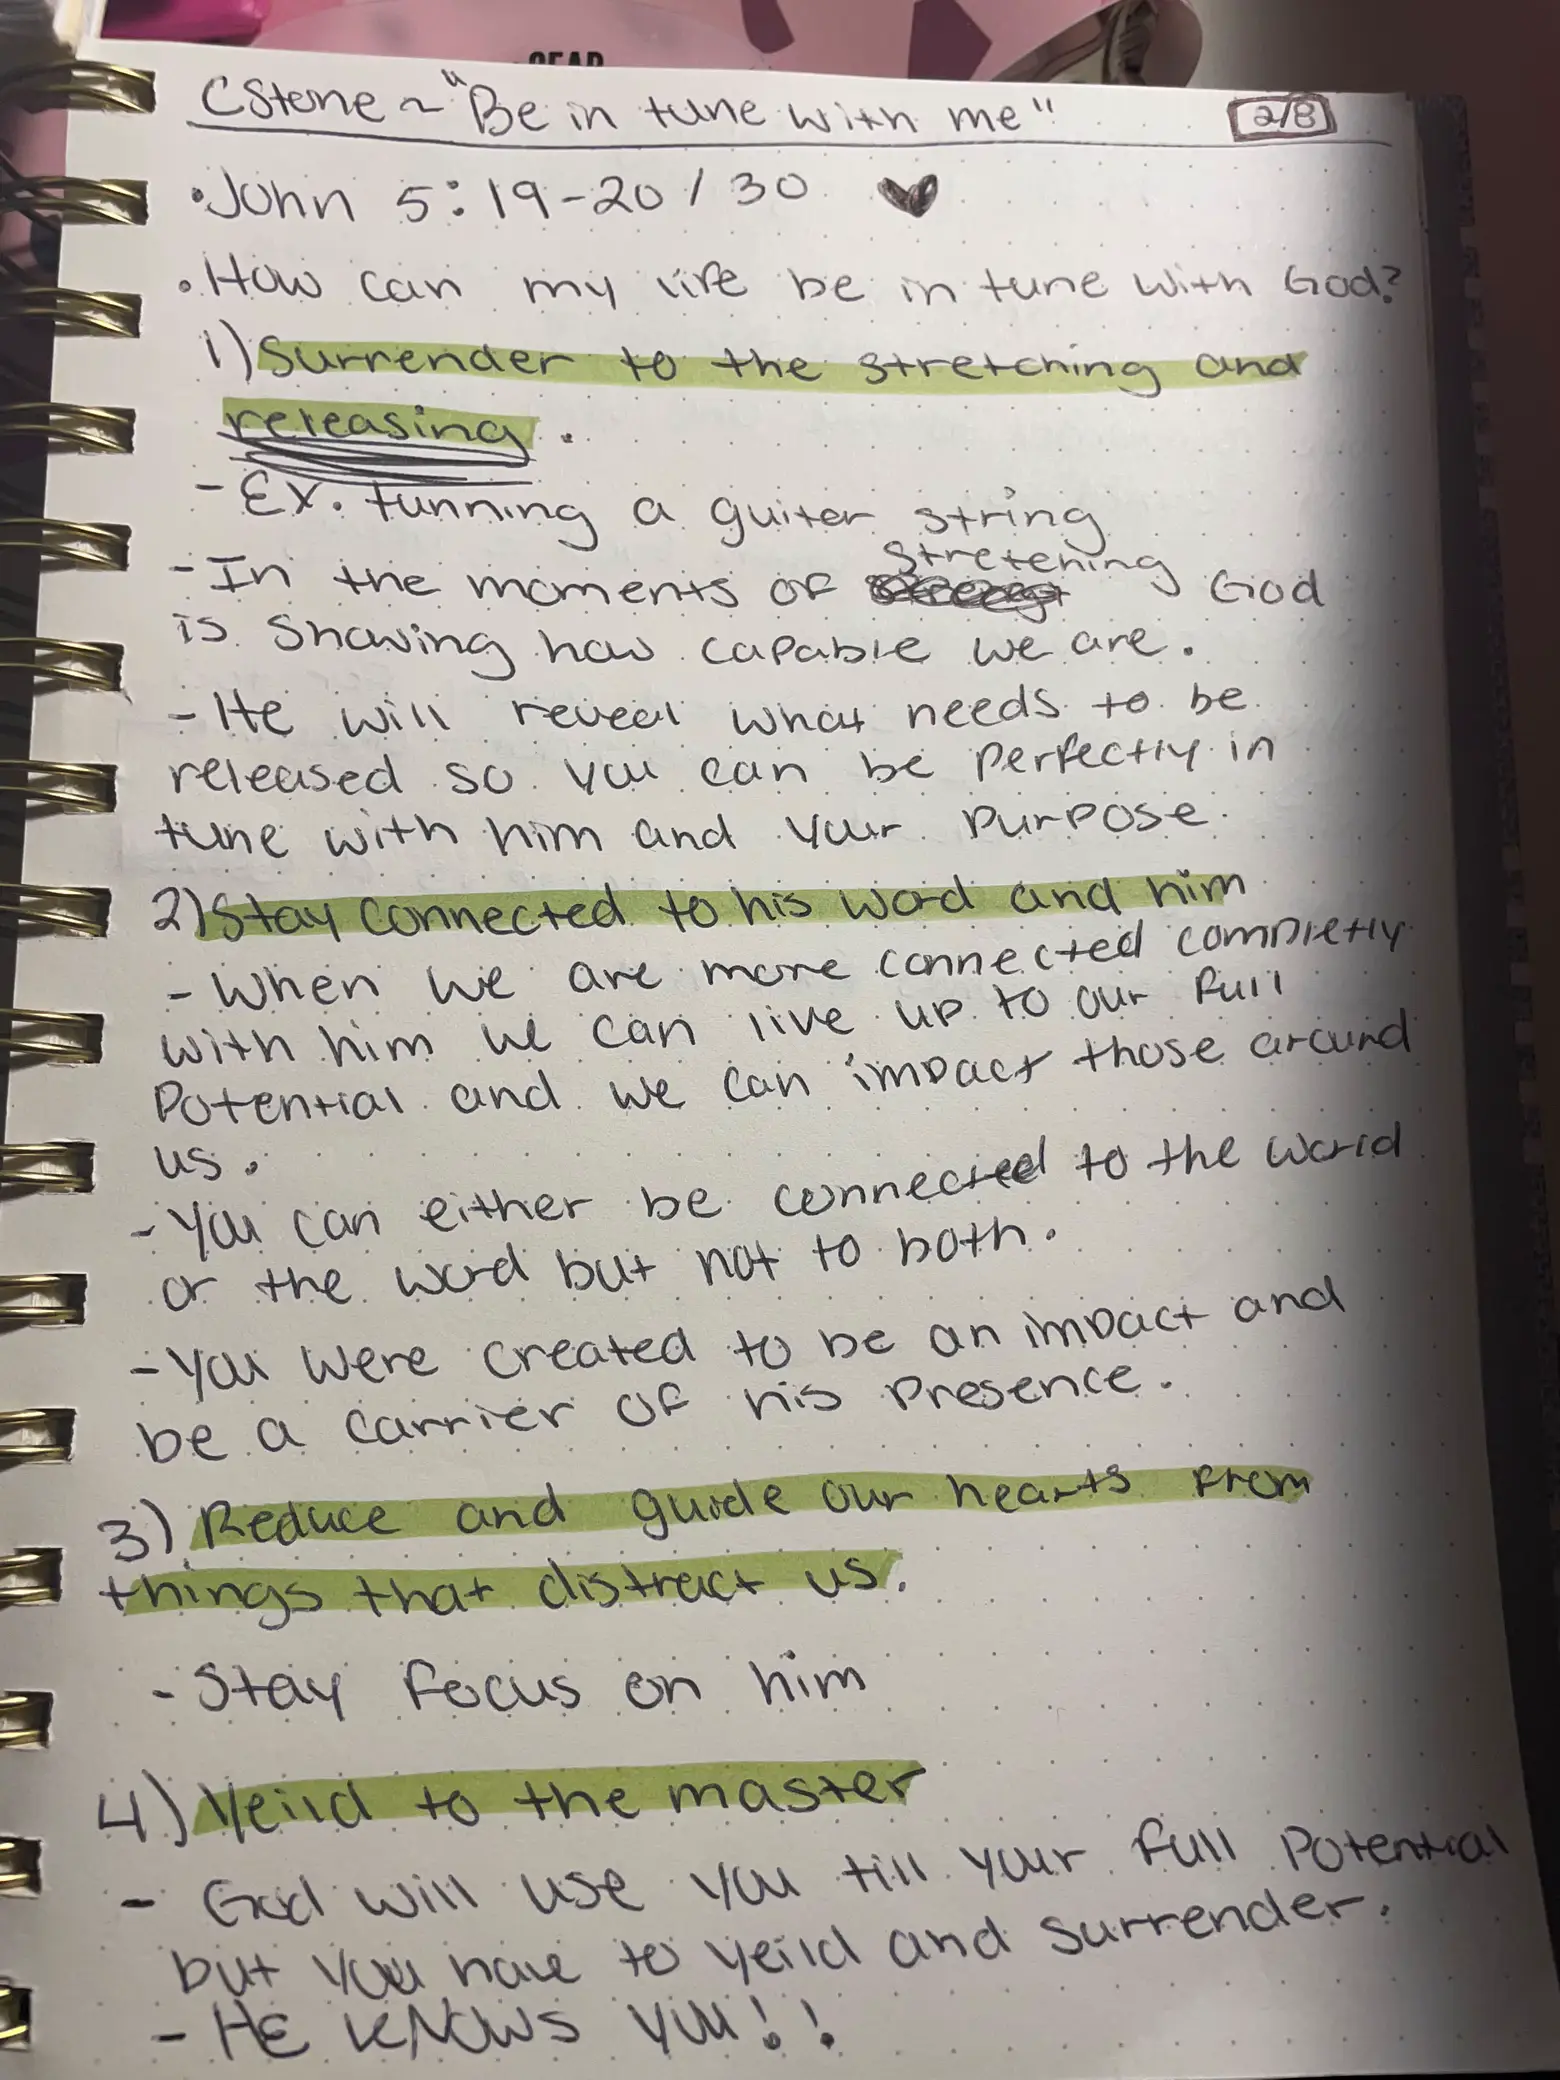 GEAR
CStone ~ "Be in tune with me" 2/8
• John 5:19-20 / 30
• How can my life be in tune with God?
1) Surrender to the stretching and
releasing.
- Ex. tunning a guiter string
stretching
- In the moments of God
is showing how capable we are.
- He will reveal what needs to be
released so you can be perfectly in
tune with him and your purpose.
2) Stay connected to his word and him
- When we are more connected completly
with him we can live up to our full
potential and we can impact those around
us.
- You can either be connected to the world
or the word but not to both.
- You were created to be an impact and
be a carrier of his presence.
3) Reduce and guide our hearts from
things that distract us.
- Stay focus on him
4) Yeild to the master
- God will use you till your full potential
but you have to yeild and surrender.
- HE KNOWS YOU!!